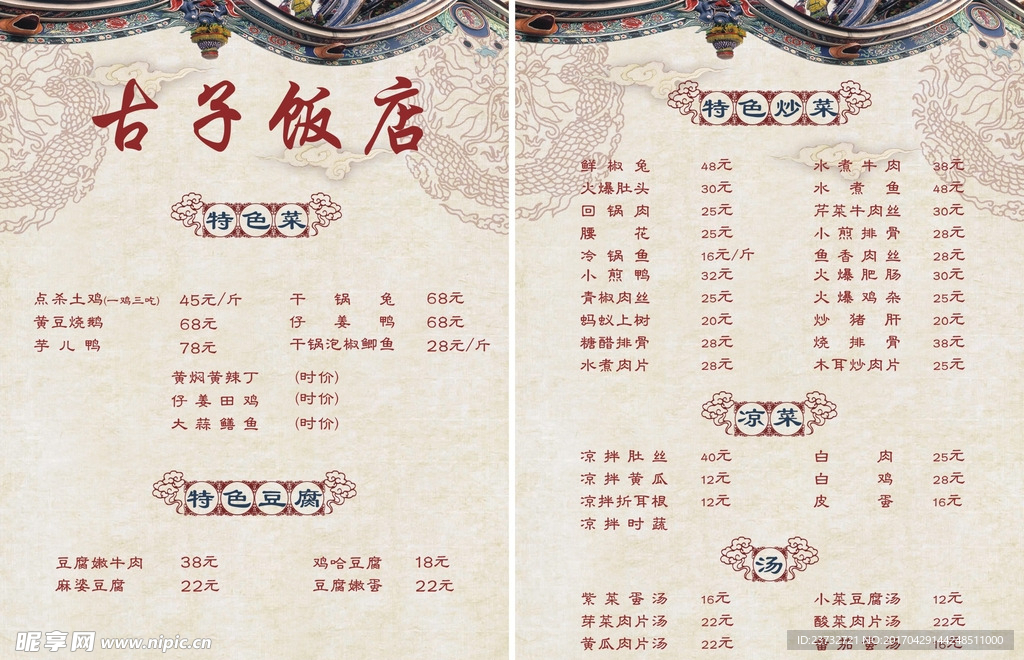 古子饭店
特色菜
点杀土鸡(一鸡三吃) 45元/斤 干锅兔 68元
黄豆烧鹅 68元 仔姜鸭 68元
芋儿鸭 78元 干锅泡椒鲫鱼 28元/斤
黄焖黄辣丁 (时价)
仔姜田鸡 (时价)
大蒜鳝鱼 (时价)
特色豆腐
豆腐嫩牛肉 38元 鸡哈豆腐 18元
麻婆豆腐 22元 豆腐嫩蛋 22元
特色炒菜
鲜椒兔 48元 水煮牛肉 38元
火爆肚头 30元 水煮鱼 48元
回锅肉 25元 芹菜牛肉丝 30元
腰花 25元 小煎排骨 28元
冷锅鱼 16元/斤 鱼香肉丝 28元
小煎鸭 32元 火爆肥肠 30元
青椒肉丝 25元 火爆鸡杂 25元
蚂蚁上树 20元 炒猪肝 20元
糖醋排骨 28元 烧排骨 38元
水煮肉片 28元 木耳炒肉片 25元
凉菜
凉拌肚丝 40元 白肉 25元
凉拌黄瓜 12元 白鸡 28元
凉拌折耳根 12元 皮蛋 16元
凉拌时蔬
汤
紫菜蛋汤 16元 小菜豆腐汤 12元
芽菜肉片汤 22元 酸菜肉片汤 22元
黄瓜肉片汤 22元 番茄蛋汤 16元
昵享网 www.nipic.cn
ID:23732721 NO:20170429144248511000